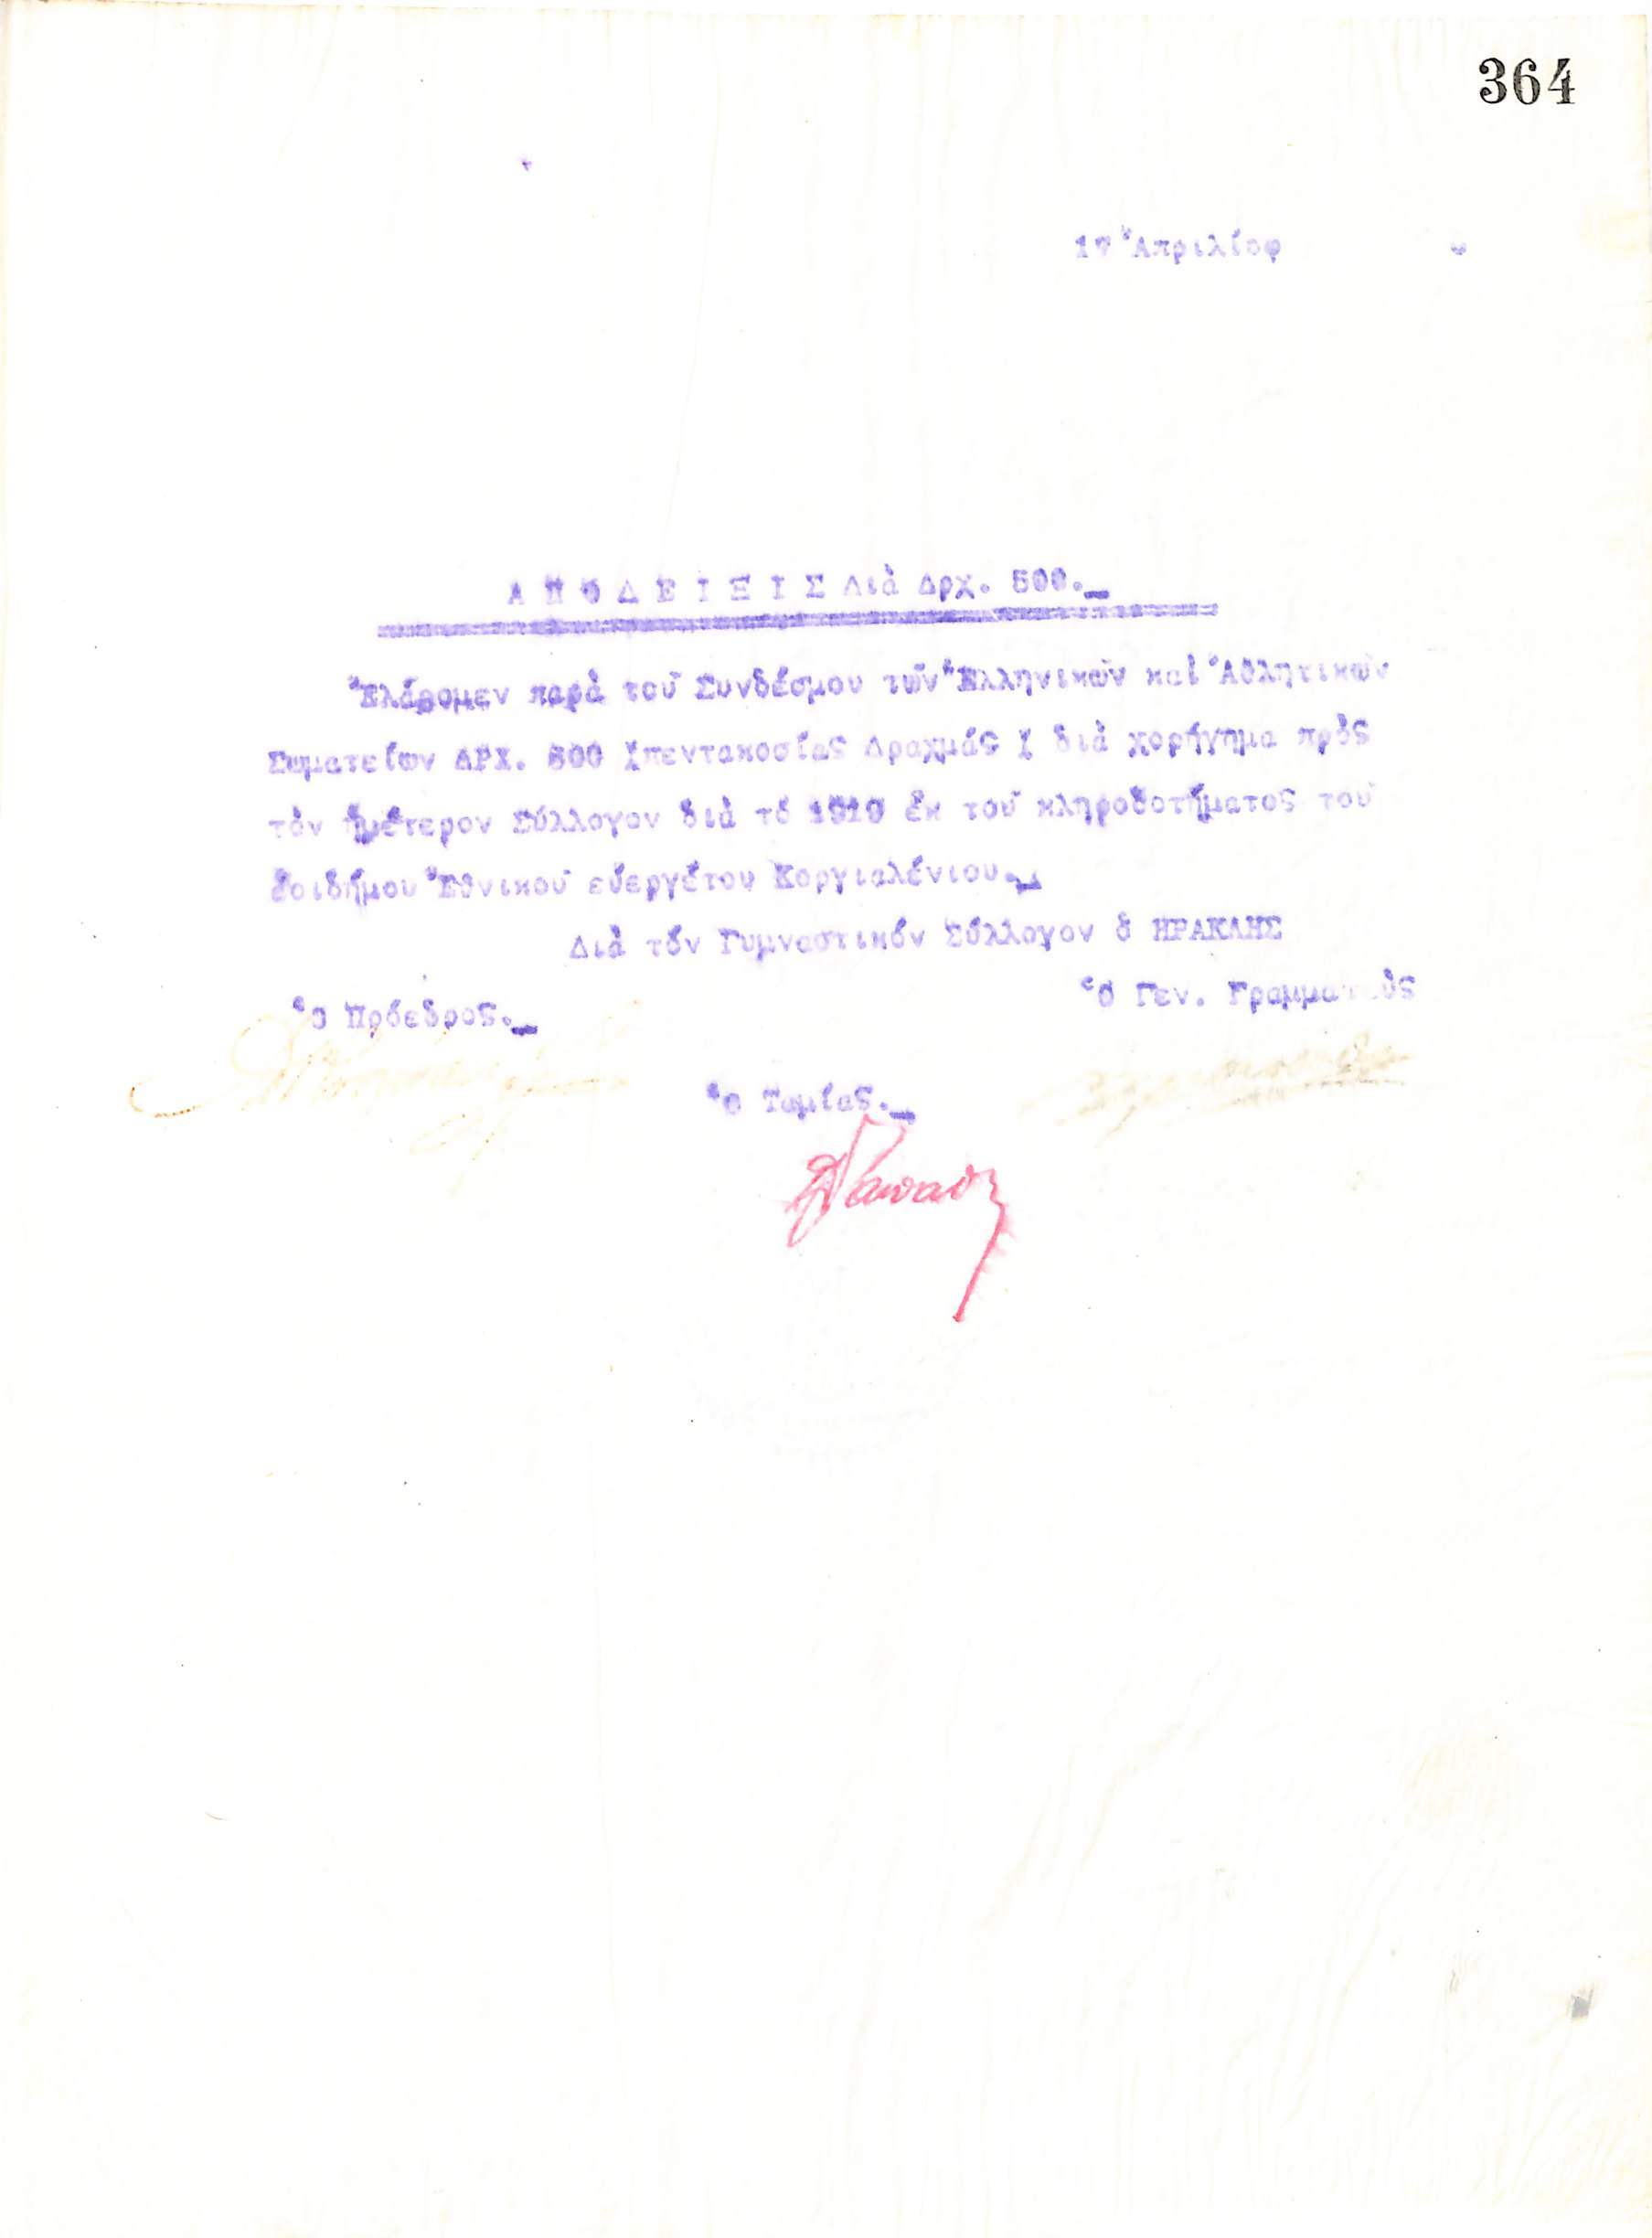 364
17 Ἀπριλίοφ
Α Π Ο Δ Ε Ι Ξ Ι Σ Διὰ Δρχ. 500.-
Ἐλάβομεν παρὰ τοῦ Συνδέσμου τῶν Ἑλληνικῶν καὶ Ἀθλητικῶν
Σωματείων ΔΡΧ. 500 (πεντακοσίας Δραχμάς ( διὰ χορήγημα πρὸς
τὸν ἡμέτερον Σύλλογον διὰ τὸ 1919 ἐκ τοῦ κληροδοτήματος τοῦ
ἀοιδήμου Ἐθνικοῦ εὐεργέτου Κοργιαλένιου.-
Διὰ τὸν Γυμναστικόν Σύλλογον ὁ ΗΡΑΚΛΗΣ
Ὁ Γεν. Γραμματεὺς
Ὁ Πρόεδρος.-
Ὁ Ταμίας.-